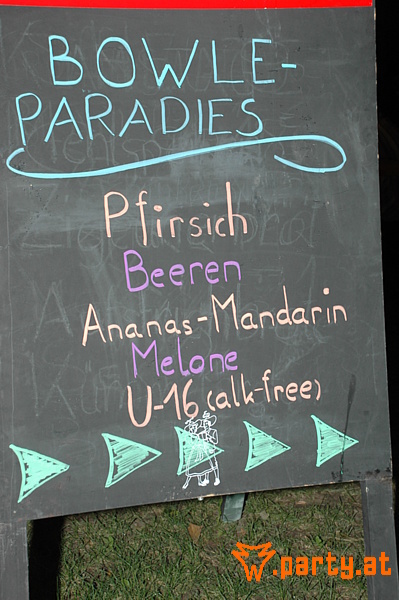 BOWLE-
PARADIES
Pfirsich
Beeren
Ananas-Mandarin
Melone
U-16 (alk-free)
.party.at